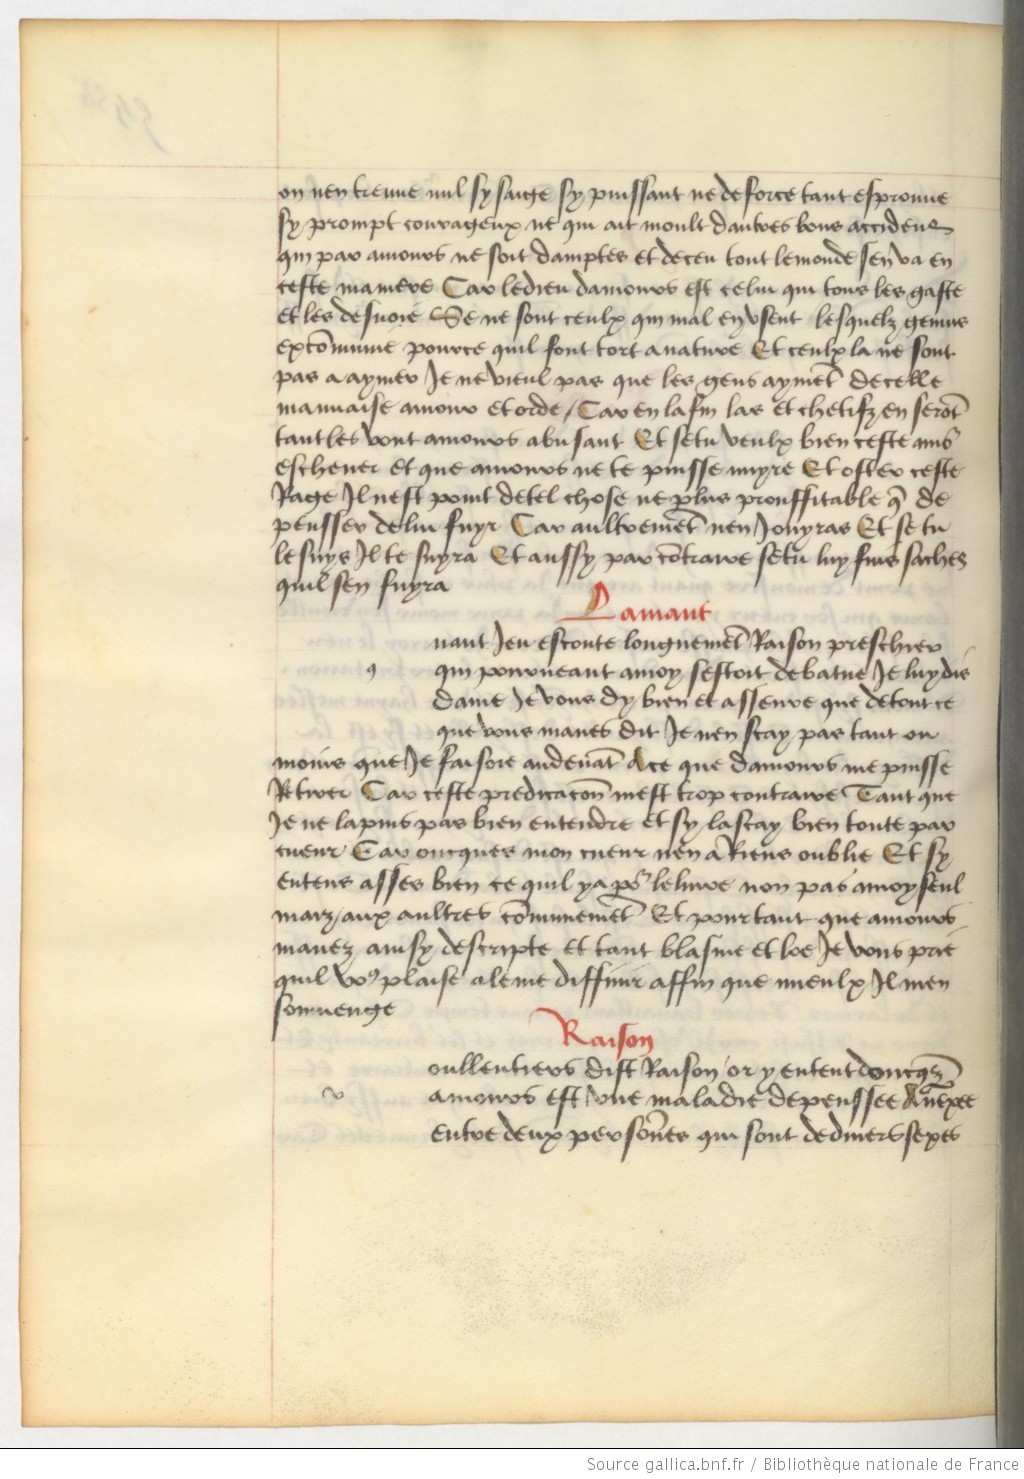 on nen treuue nul sy saige sy puissant ne de force tant esprouue
sy prompt couraigeux ne qui ait moult dautres bons accidens
qui par amours ne soit damptes et deceu tout le monde sen va en
ceste maniere Car le dieu damours est celui qui tous les gaste
et les desuoie Se ne sont ceulx qui mal en vsent lesquelz genius
excōmunie pource quil font tort a nature Et ceulx la ne sont
pas a aymer Je ne vieul pas que les gens aymēt de celle
mauuaise amour et orde / Car en la fin las et chetifz en serōt
tant les vont amours abusant Et se tu veulx bien ceste
escheuer et que amours ne te puisse nuyre Et oster ceste
Rage Il nest point de tel chose ne plus prouffitable q̄ de
pensser de lui fuyr Car aultremēt nen Jouyras Et se tu
le suys Il te suyra Et aussy par cōtraire se tu luy fuis saches
quil sen fuyra
Lamant
uant Jeu escoute longuemēt Raison preschier
q qui pourneant a moy sestoit debatue Je luy dis
dame Je vous dy bien et asseure que de tout ce
que vous maues dit Je nen scay pas tant ou
moins que Je faisoie au deuāt A ce que damours me puisse
Retirer Car ceste predicacōn mest trop contraire Tant que
Je ne la puis pas bien entendre et sy la scay bien toute par
cueur Car oncques mon cueur nen a Riens oublie Et sy
entens asses bien ce quil y a po͛ le liure non pas a moy seul
maiz aux aultres cōmunemēt Et pourtant que amours
mauez ainsy descripte et tant blasme et loe Je vous prie
quil vo⁹ plaise a le me diffinir affin que mieulx Il men
souuenge
Raison
oullentiers dist Raison or y entent doncq̄z
v amours est vne maladie de penssee Anexee
entre deux persōnes qui sont de diuers sexes
Source gallica.bnf.fr / Bibliothèque nationale de France